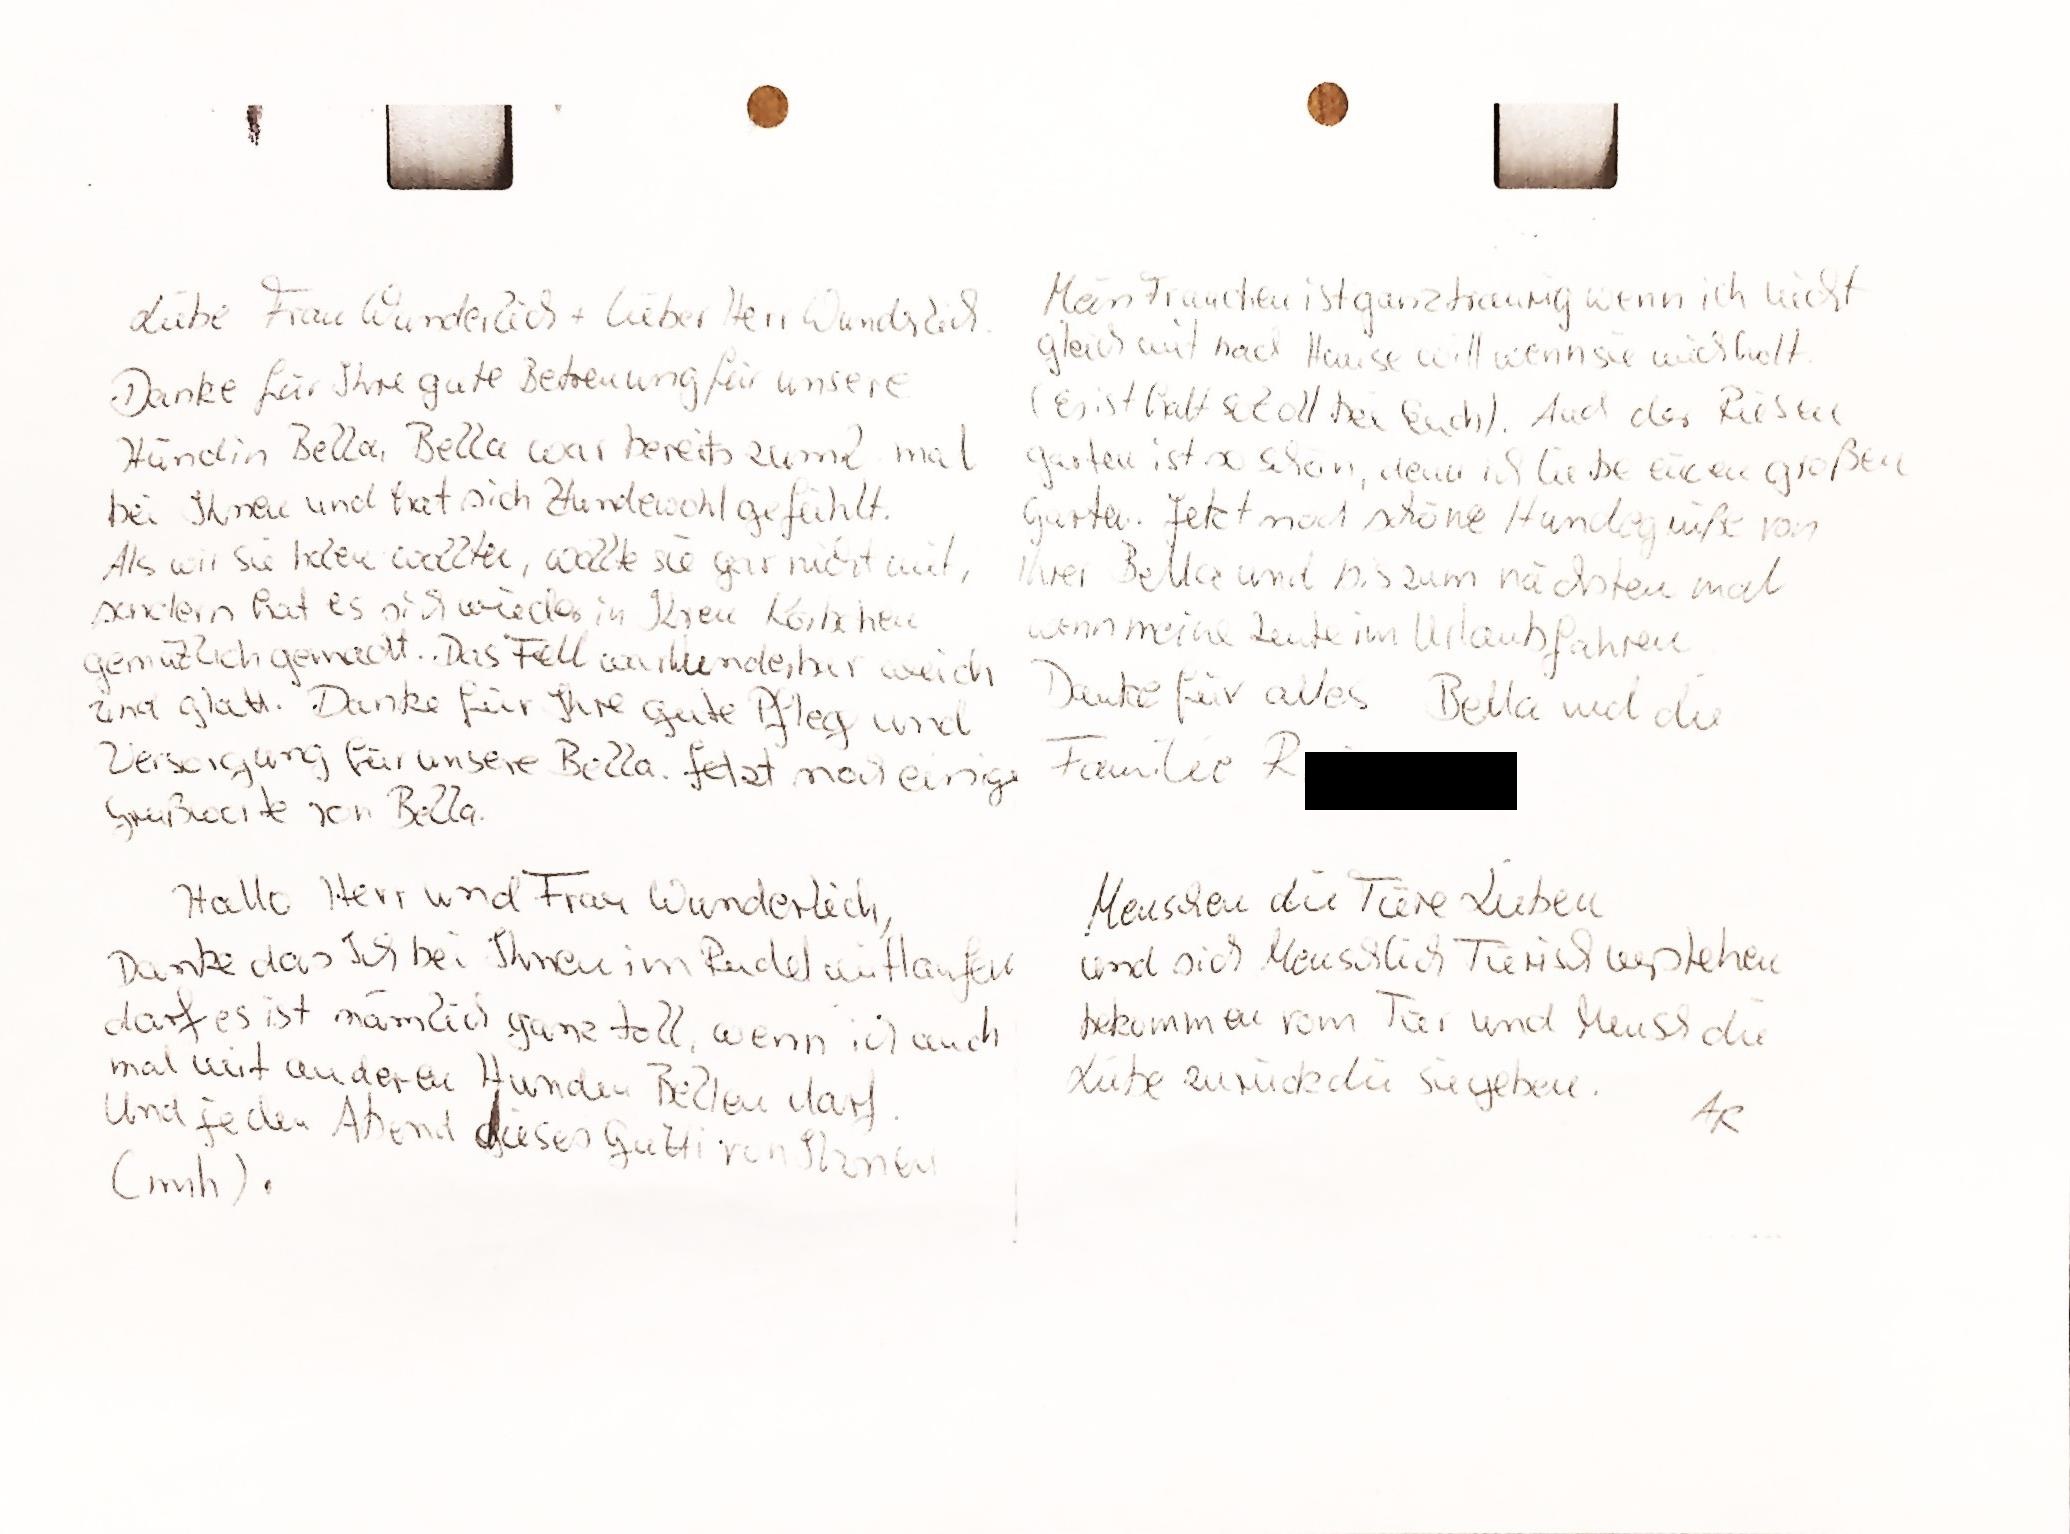 Liebe Frau Wunderlich + lieber Herr Wunderlich.
Danke für Ihre gute Betreuung für unsere
Hündin Bella. Bella war bereits zum 2. mal
bei Ihnen und hat sich Hundewohl gefühlt.
Als wir sie holen wollten, wollte sie gar nicht mit,
sondern hat es sich wieder in Ihren Körbchen
gemütlich gemacht. Das Fell war Wunderbar weich
und glatt. Danke für Ihre gute Pfleg und
Versorgung für unsere Bella. Jetzt noch einige
Grußworte von Bella.
Hallo Herr und Frau Wunderlich,
Danke das Ich bei Ihnen im Rudel mitlaufen
darf es ist nämlich ganz toll, wenn ich auch
mal mit anderen Hunden Bellen darf.
Und jeden Abend dieses Gutti von Ihnen
(mh).
Mein Frauchen ist ganz traurig wenn ich nicht
gleich mit nach Hause will wenn sie mich holt.
(Es ist halt so toll bei Euch). Auch der Riesen
garten ist so schön, denn ich liebe euren großen
Garten. Jetzt noch schöne Hundegrüße von
Ihrer Bella und bis zum nächsten mal
wenn meine Leute im Urlaub fahren
Danke für alles Bella und die
Familie R
Menschen die Tiere Lieben
und sich Menschlich Tierisch verstehen
bekommen vom Tier und Mensch die
Liebe zurück die sie geben.
AR